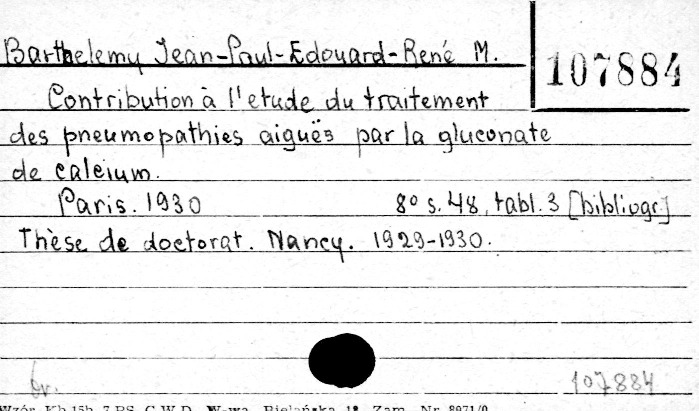 Barthelemy Jean-Paul-Edouard-René M.
107884
Contribution à l'etude du traitement
des pneumopathies aiguës par la gluconate
de calcium.
Paris. 1930 8° s. 48, tabl. 3 [bibliogr.]
Thèse de doctorat. Nancy. 1929-1930.
br. 107884
Wzór. Kb 15b. 7 PS. C.W.D. W-wa, Bielańska 18. Zam. Nr. 8971/0